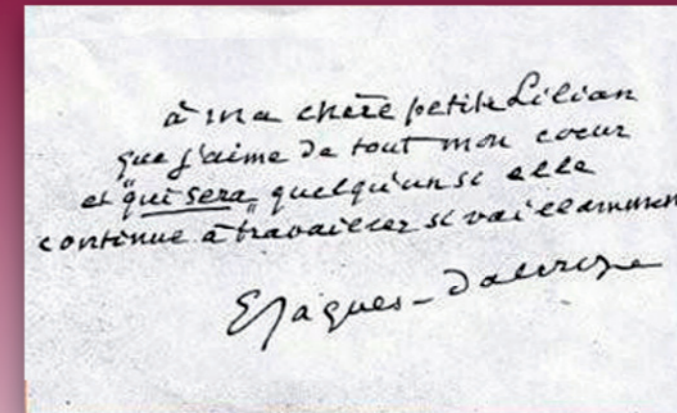 à ma chère petite Lilian
que j'aime de tout mon coeur
et "qui sera" quelqu'un si elle
continue à travailler si vaillammen
E Jaques-Dalcroze